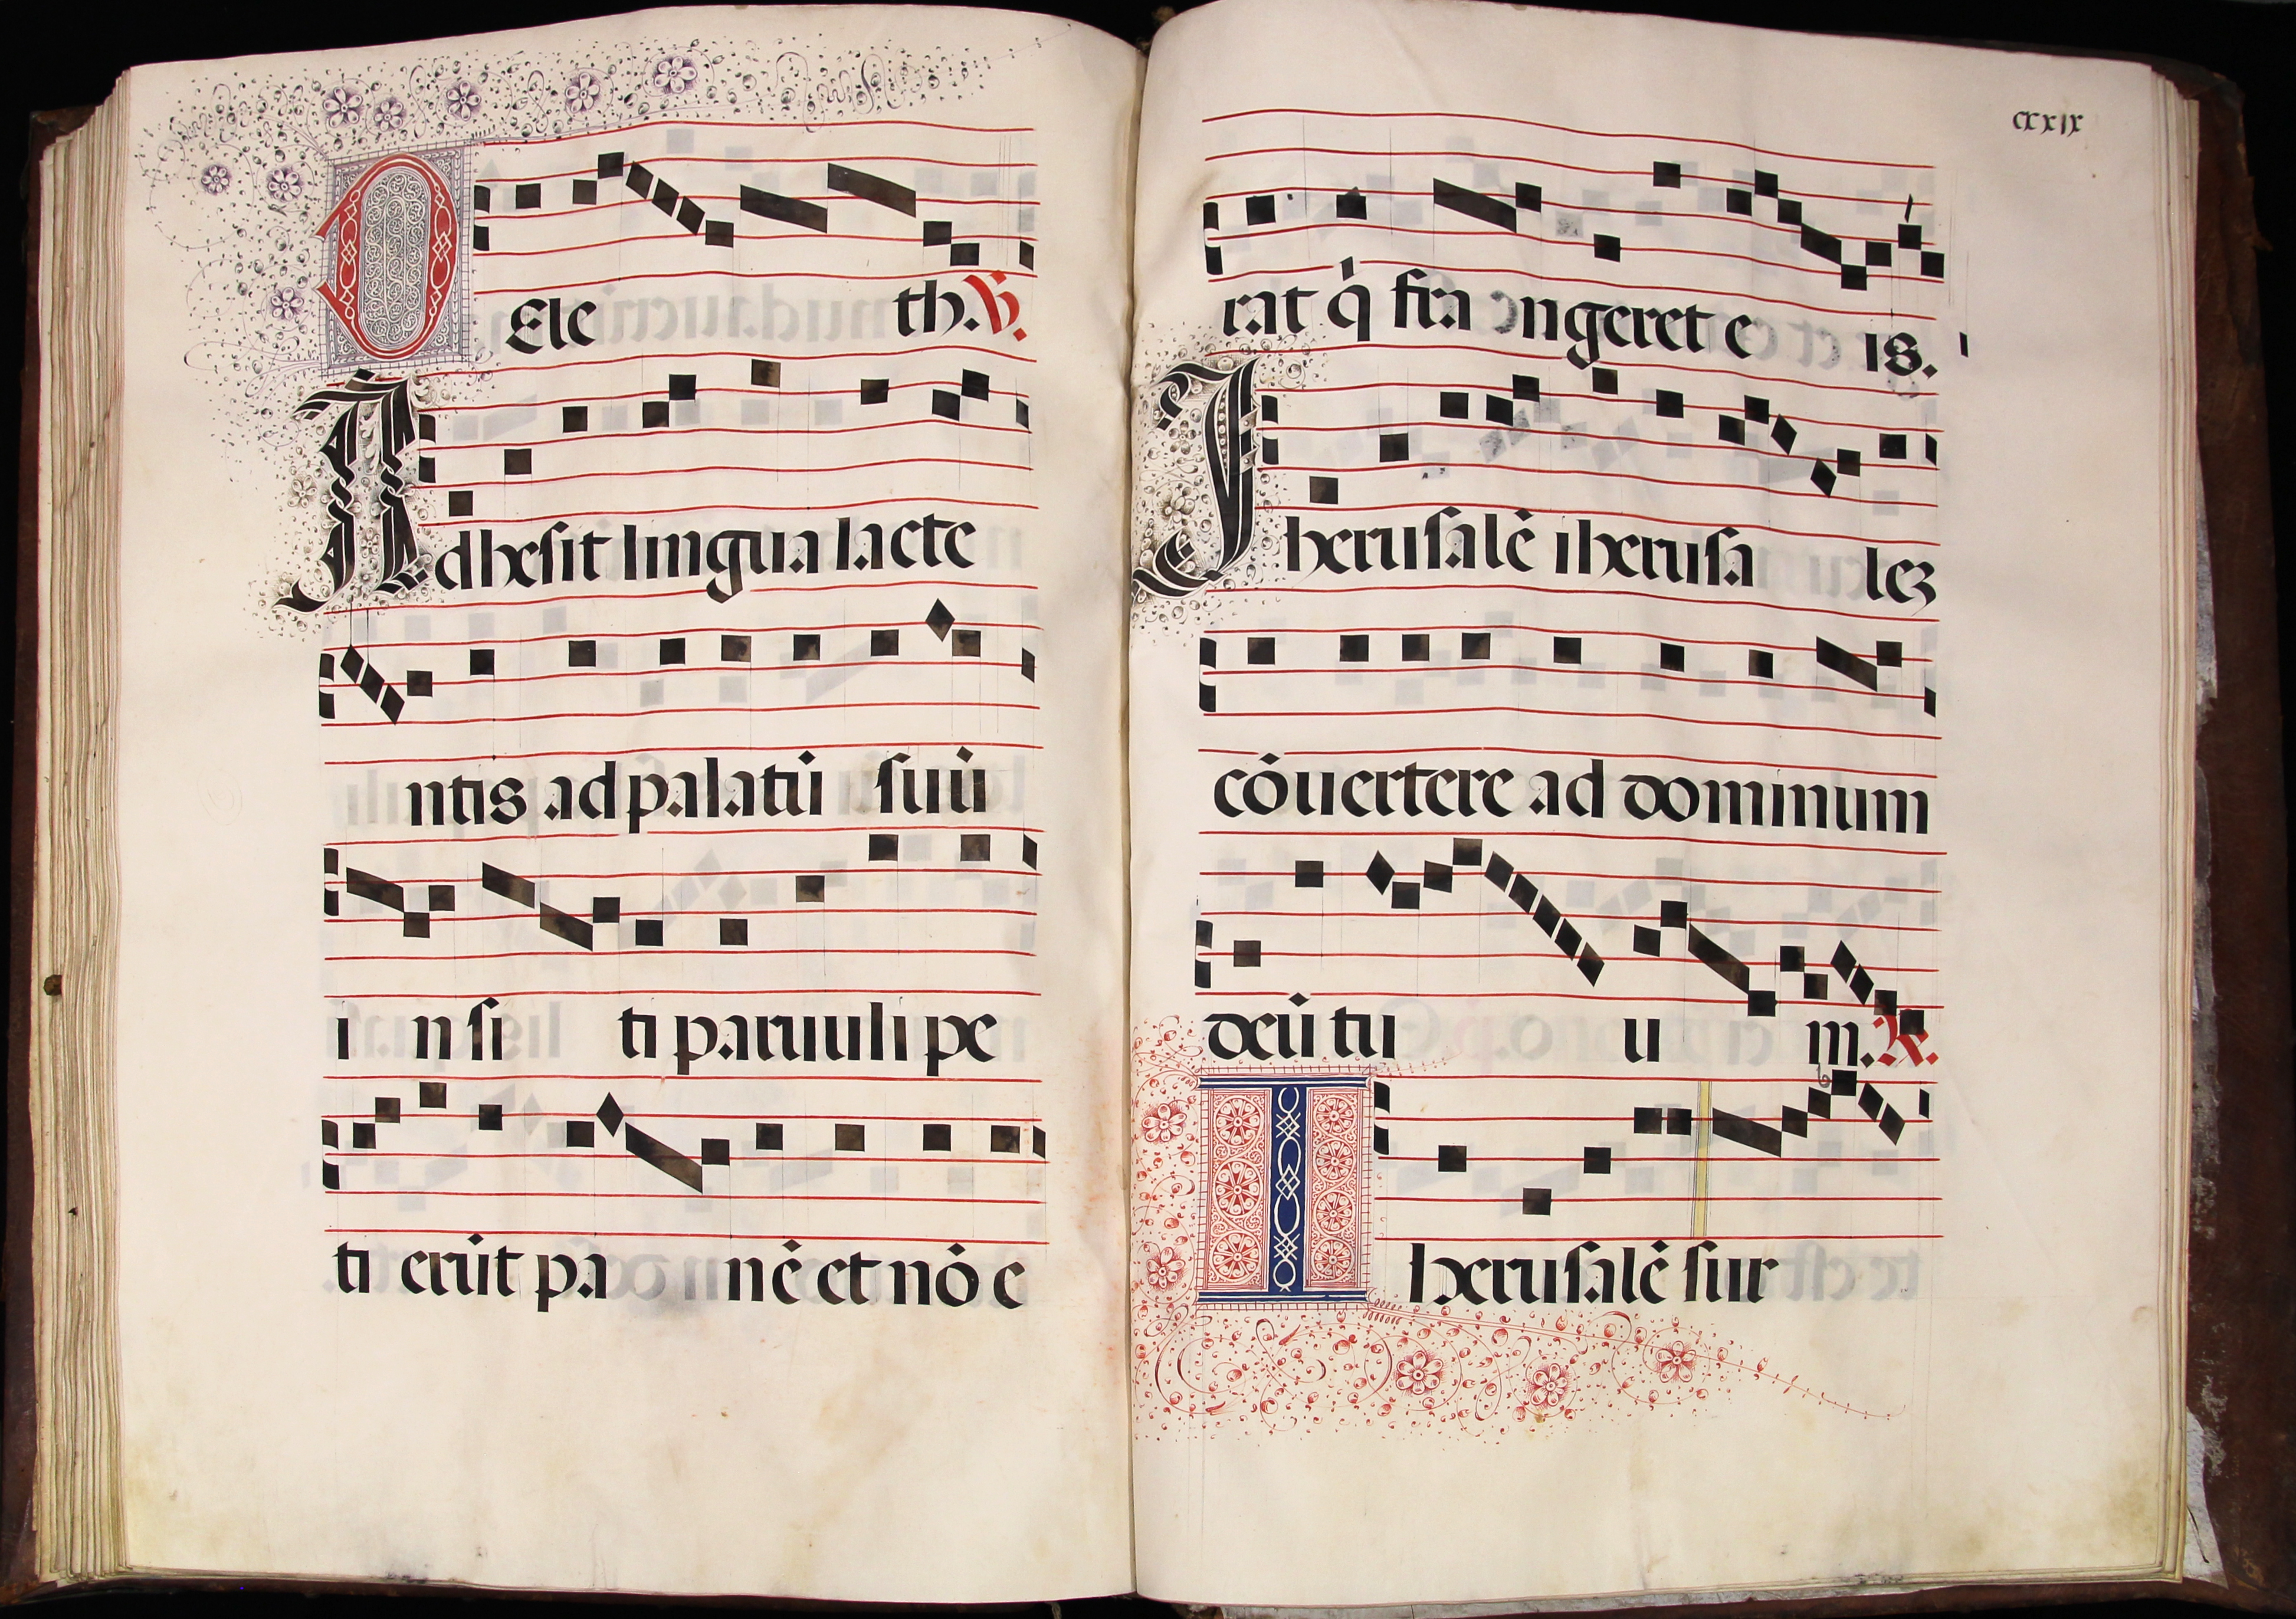 DEle th. ℣.
Adhesit lingua lacte
ntis ad palatū suū
i n si ti paruuli pe
ti erūt pa nē et nō e
cxxix
rat q̇ fra ngeret e is.
Iherusalē iherusa leꝫ
cōuertere ad dominum
deū tu u m. ℟.
Iherusalē sur